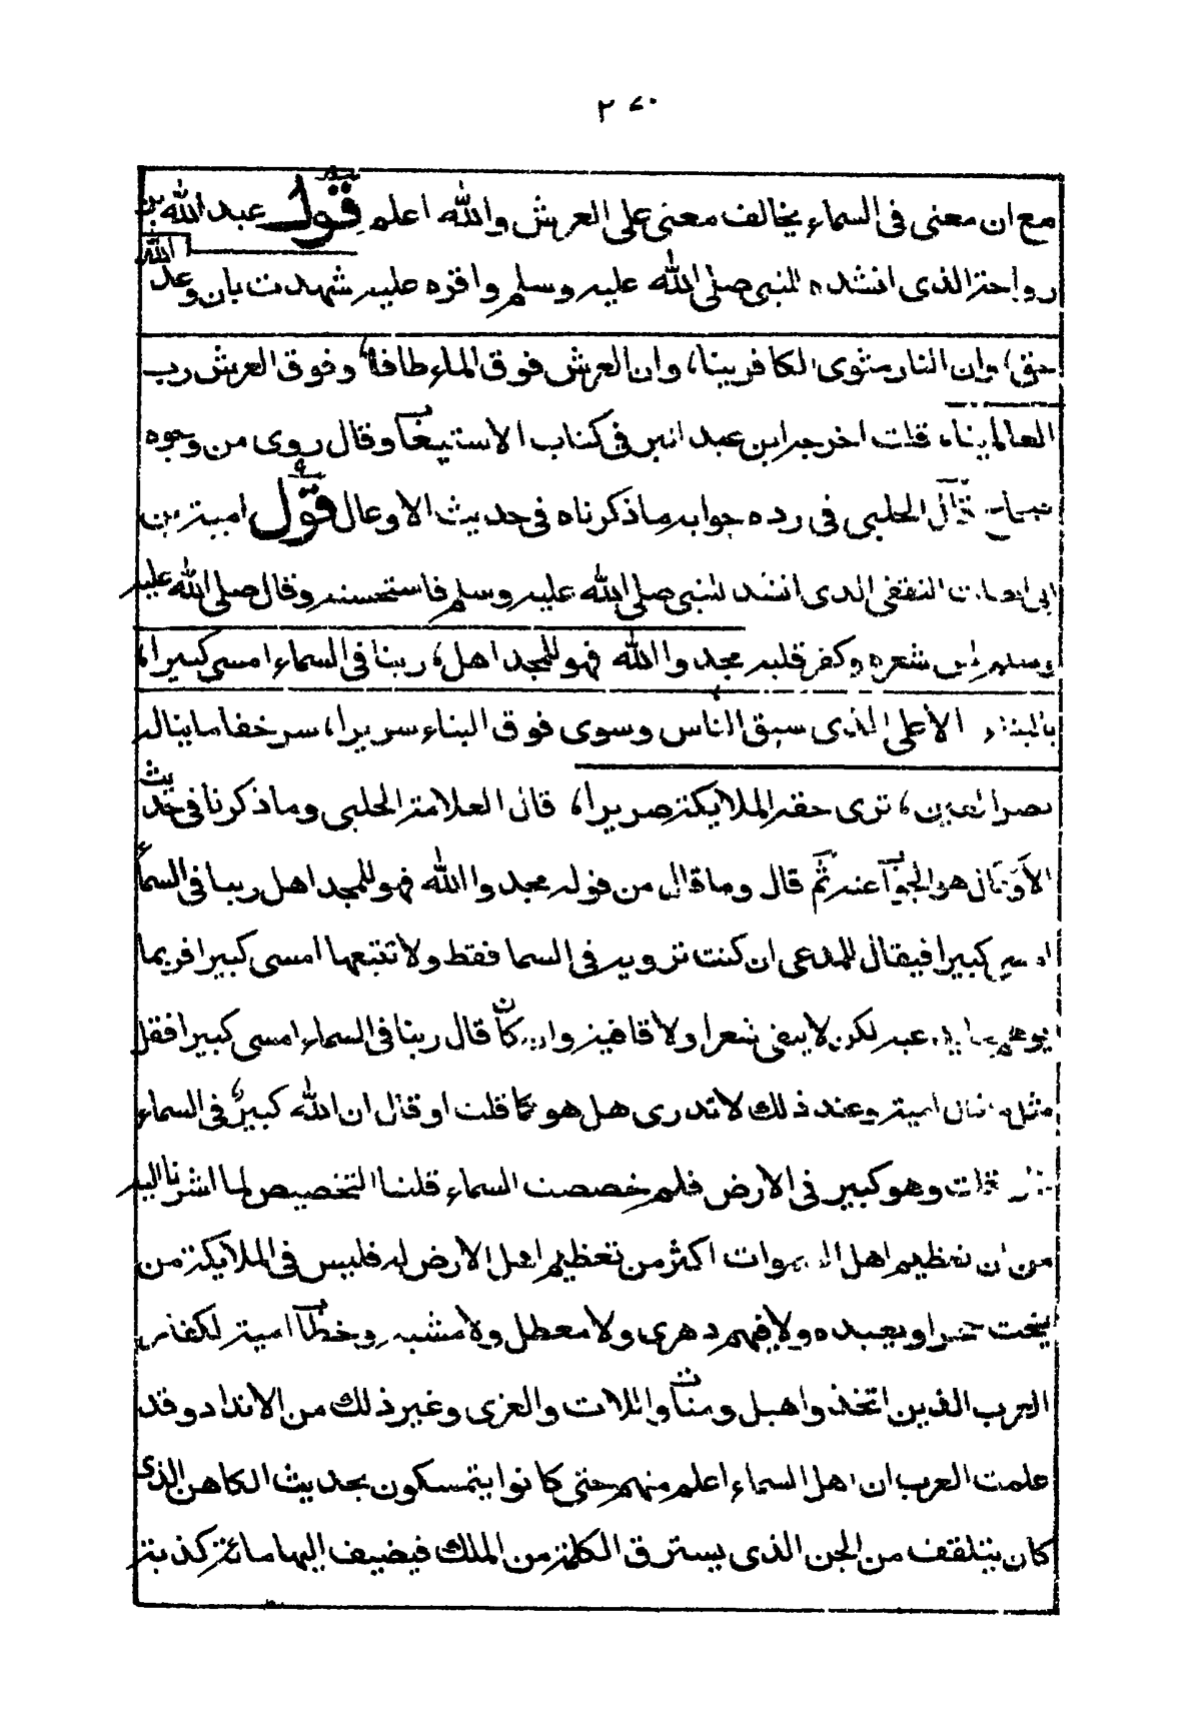 ٢٧٠
مع ان معنى فى السماء يخالف معنى على العرش والله اعلم قول عبد الله بن
رواحة الذى انشده للنبى صلى الله عليه وسلم واقره عليه شهدت بان وعد الله
حق، وان النار مثوى الكافرينا، وان العرش فوق الماء طاف، وفوق العرش رب
العالمينا، قلت اخرجه ابن عبد البر فى كتاب الاستيعاب وقال روى من وجوه
صحاح قال الحلبى فى رده جوابه ما ذكرناه فى حديث الاوعال قول امية بن
ابى الصلت الثقفى الذى انشد للنبى صلى الله عليه وسلم فاستحسنه وقال صلى الله عليه
وسلم امن شعره وكفر قلبه مجدوا الله فهو للمجد اهل، ربنا فى السماء امسى كبيرا،
بالبناء الأعلى الذى سبق الناس وسوى فوق البناء سريرا، سرخفا ما يناله
بصر العين، ترى حقه الملايكة صريرا، قال العلامة الحلبى وما ذكرنا فى حديث
الاوعال هو الجواب عنه ثم قال وما قال من قوله مجدوا الله فهو للمجد اهل ربنا فى السماء
امسى كبيرا فيقال للمدعى ان كنت ترويه فى السما فقط ولا تتبعها امسى كبيرا فربما
يوهم عبه لكن لا يبقى شعرا ولا قافية وان كان قال ربنا فى السماء امسى كبيرا فقل
مثل ما قال امية وعند ذلك لا تدرى هل هو كما قلت او قال ان الله كبير فى السماء
قلت وهو كبير فى الارض فلم خصصت السماء قلنا التخصيص لما اشرنا اليه
من ان تعظيم اهل السموات اكثر من تعظيم اهل الارض له فليس فى الملايكة من
ينحت حجرا ويعبده ولا فيهم دهرى ولا معطل ولا مشبه وخطاب امية لكفار
العرب الذين اتخذوا هبل ومناة واللات والعزى وغير ذلك من الانداد وقد
علمت العرب ان اهل السماء اعلم منهم حتى كانوا يتمسكون بحديث الكاهن الذى
كان يتلقف من الجن الذى يسترق الكلمة من الملك فيضيف اليها مائة كذبة